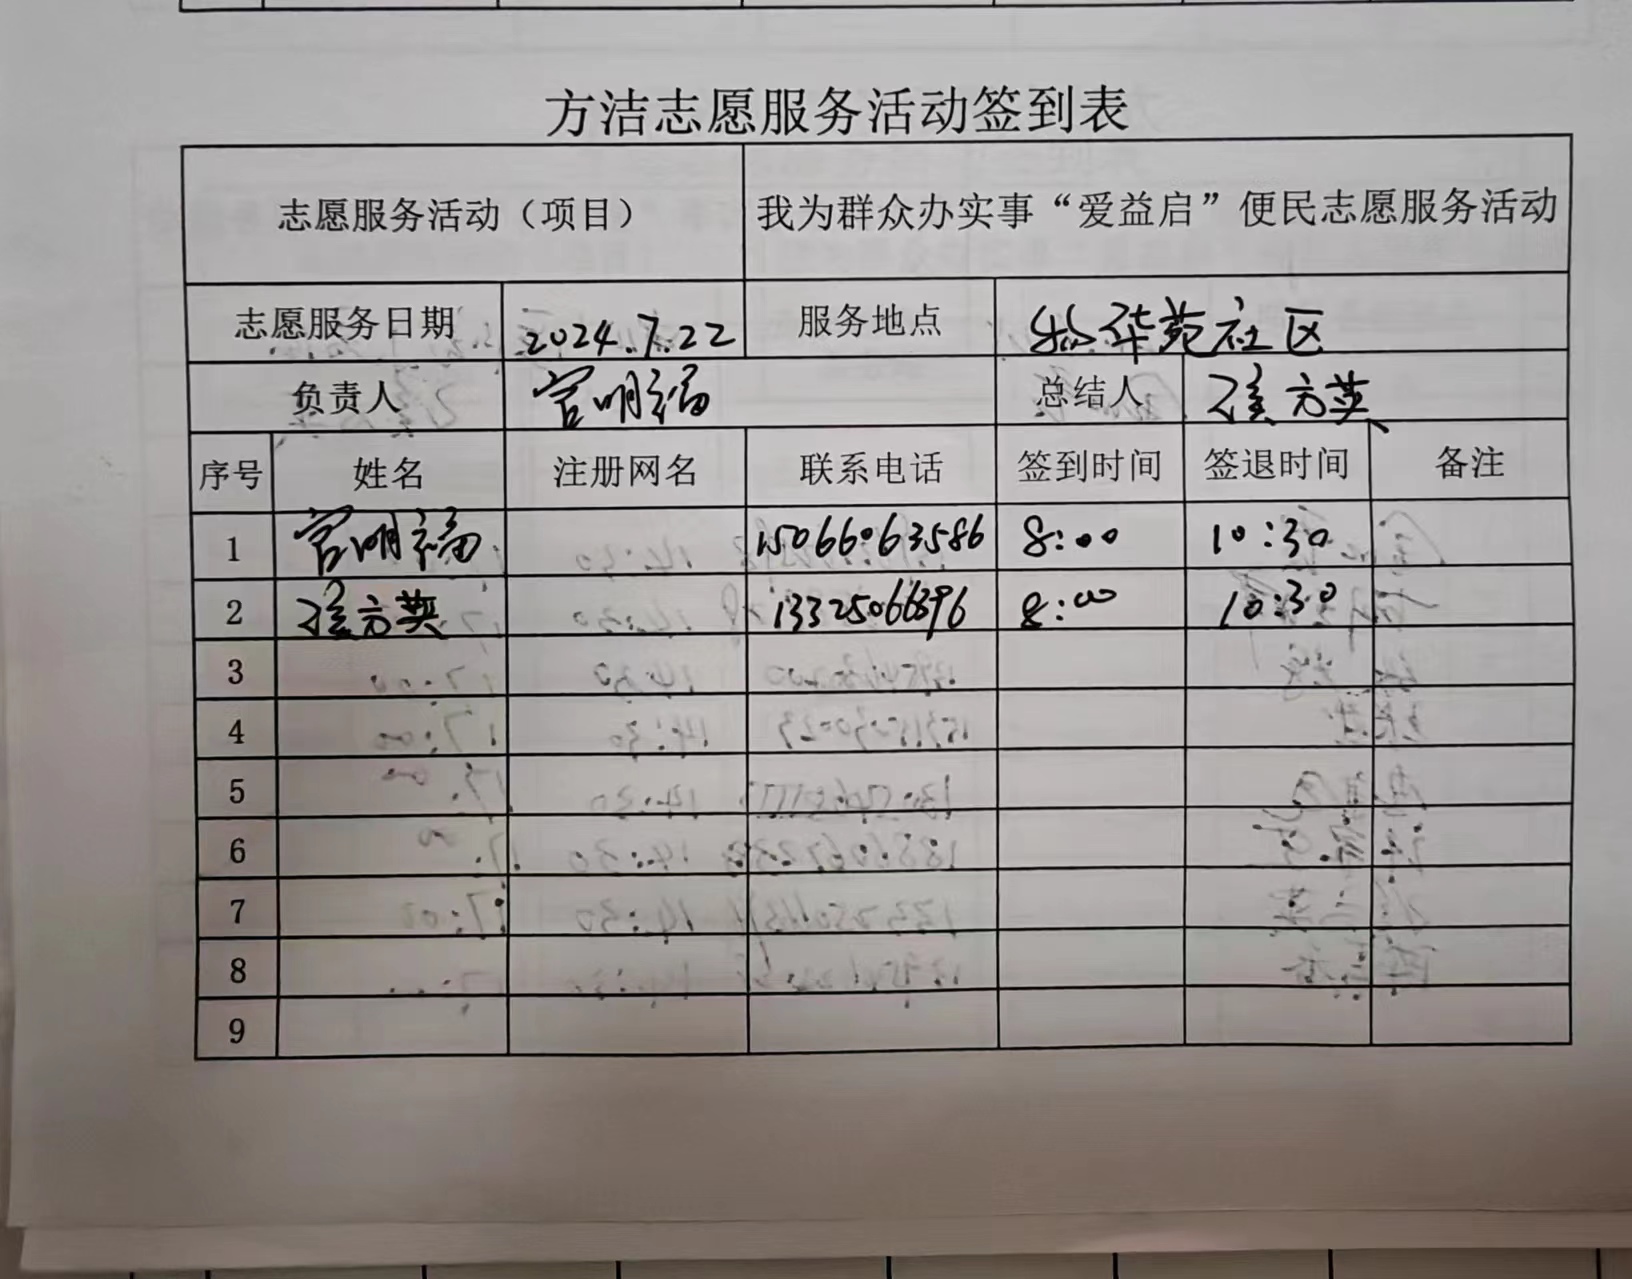 方洁志愿服务活动签到表
志愿服务活动（项目） 我为群众办实事“爱益启”便民志愿服务活动
志愿服务日期 2024.7.22 服务地点 华苑社区
负责人 官明福 总结人 方英
序号 姓名 注册网名 联系电话 签到时间 签退时间 备注
1 官明福 15066063586 8:00 10:30
2 方英 13325066896 8:00 10:30
3
4
5
6
7
8
9